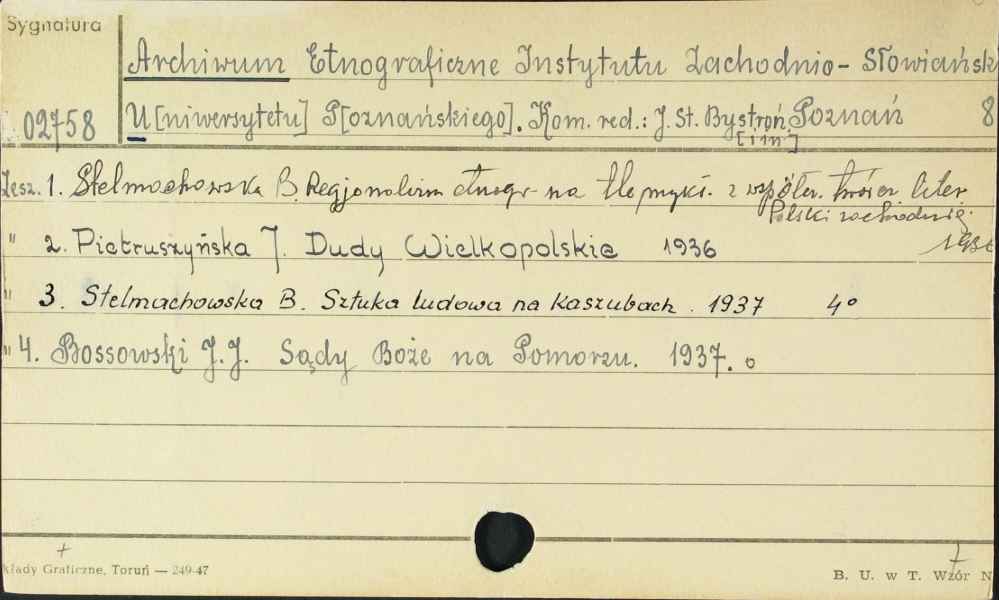 Sygnatura
Archiwum Etnograficzne Instytutu Zachodnio-Słowiańsk
02758 U[niwersytetu] P[oznańskiego]. Kom. red.: J. St. Bystroń, Poznań 8
[i in]
Zesz. 1. Stelmachowska B. Regjonalizm etnogr. na tle 2 współcz. twórcz. liter.
Polski zachodniej.
" 2. Pietruszyńska J. Dudy Wielkopolskie 1936
1936
" 3. Stelmachowska B. Sztuka ludowa na Kaszubach. 1937 4°
" 4. Bossowski J.J. Sądy Boże na Pomorzu. 1937. o
kłady Graficzne, Toruń — 249-47
B. U. w T. Wzór N